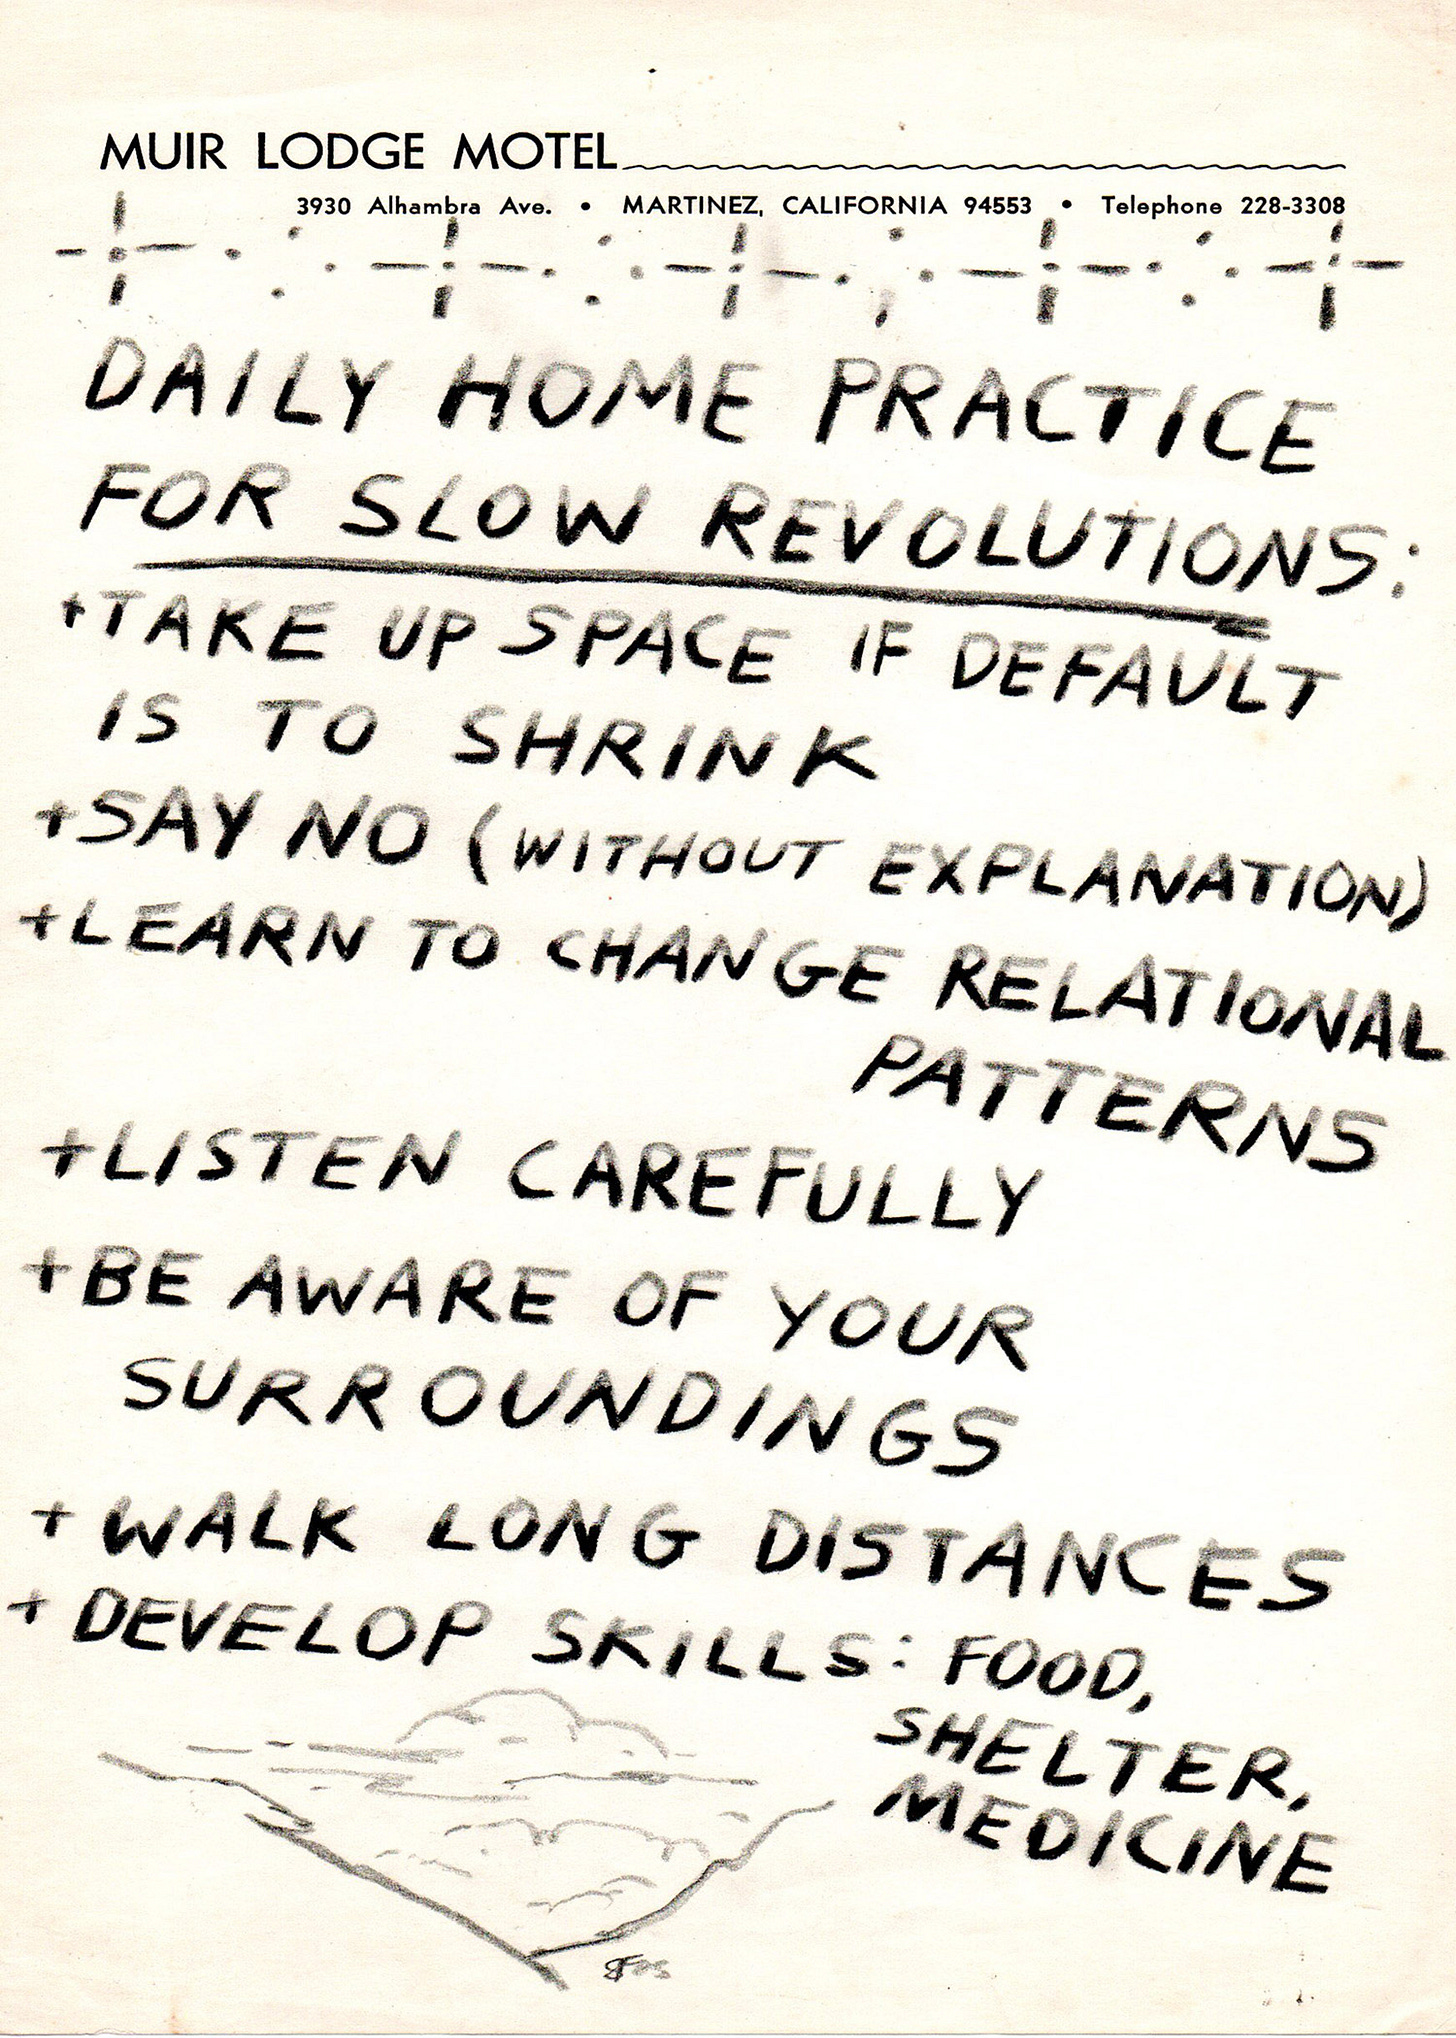 MUIR LODGE MOTEL
3930 Alhambra Ave. • MARTINEZ, CALIFORNIA 94553 • Telephone 228-3308
DAILY HOME PRACTICE
FOR SLOW REVOLUTIONS:
+TAKE UP SPACE IF DEFAULT
IS TO SHRINK
+SAY NO (WITHOUT EXPLANATION)
+LEARN TO CHANGE RELATIONAL
PATTERNS
+LISTEN CAREFULLY
+BE AWARE OF YOUR
SURROUNDINGS
+WALK LONG DISTANCES
+DEVELOP SKILLS: FOOD,
SHELTER,
MEDICINE